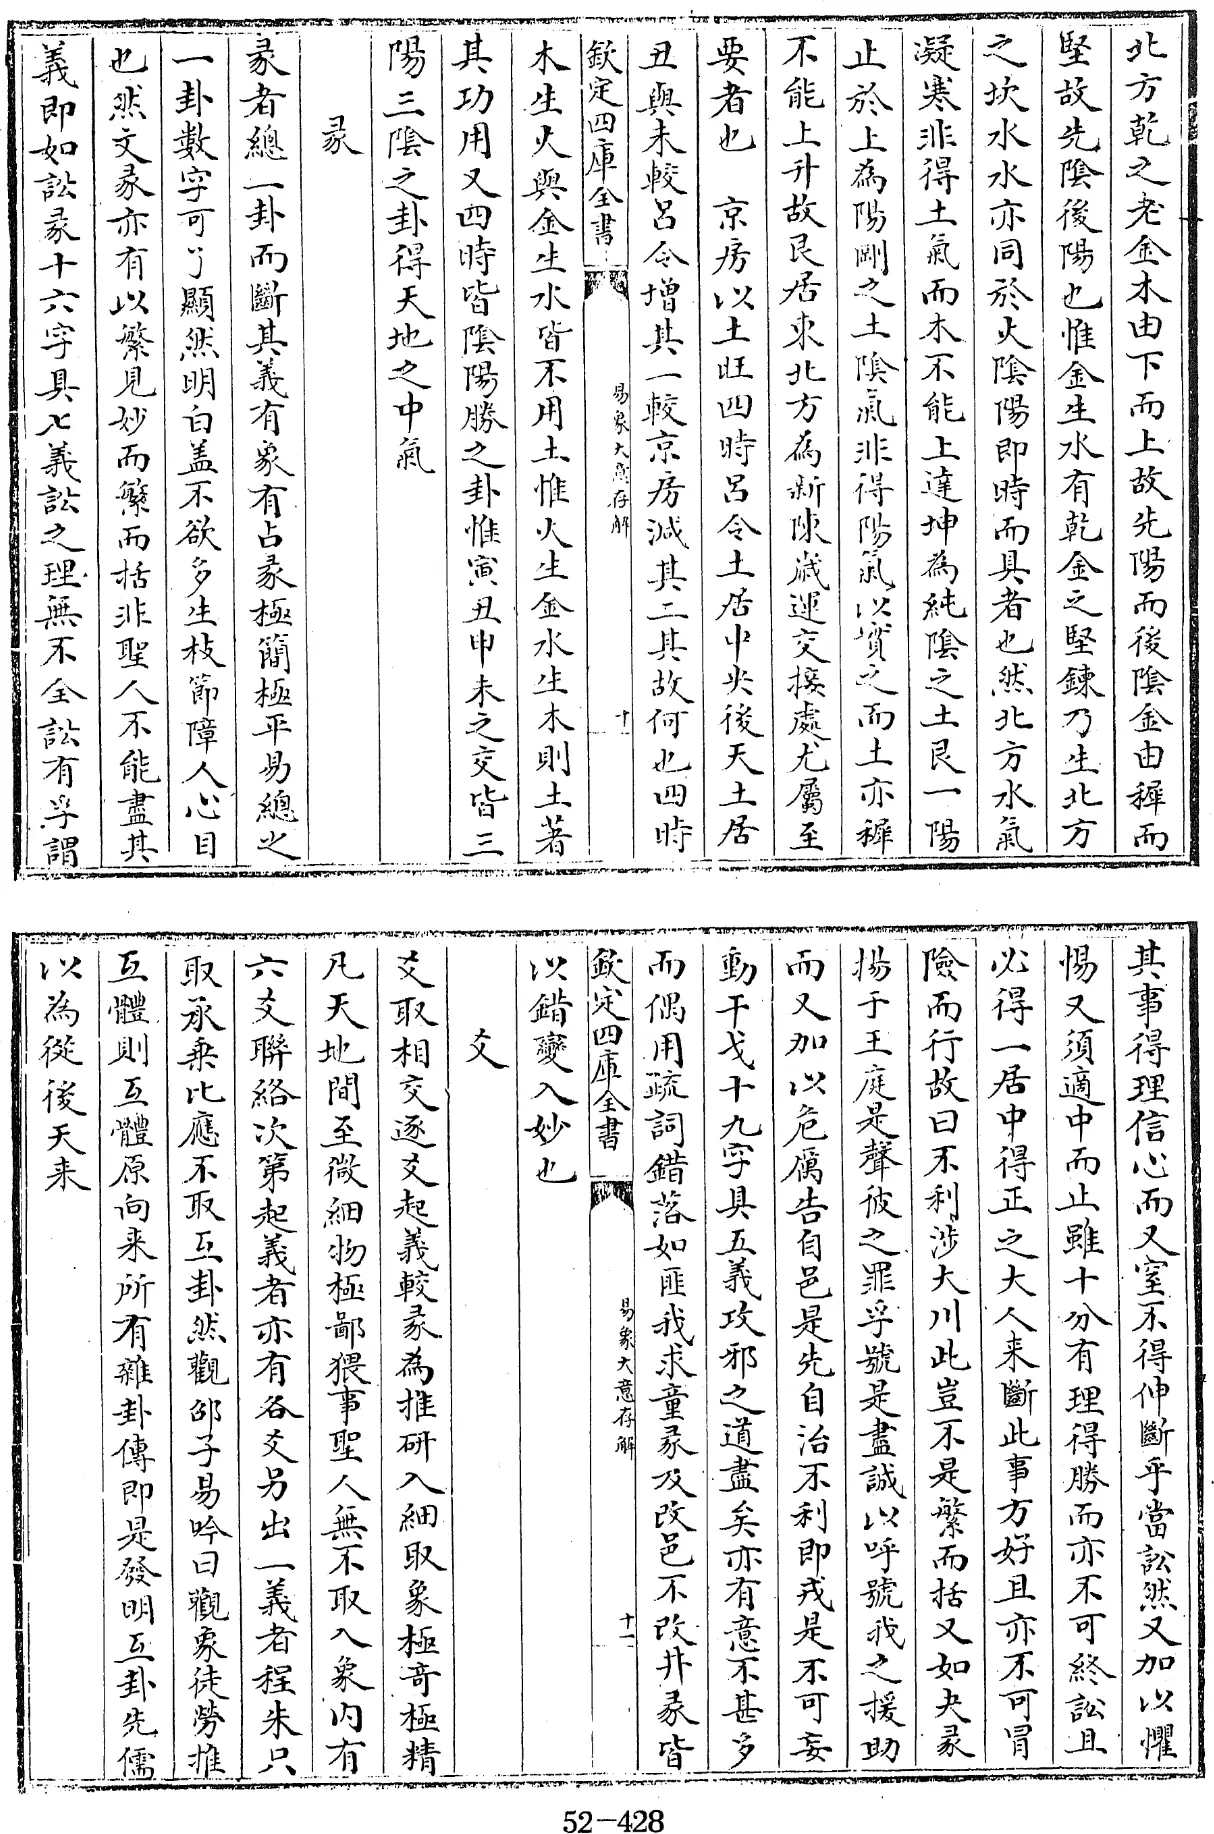 北方乾之老金木由下而上故先陽而後陰金由穉而
堅故先陰後陽也惟金生水有乾金之堅鍊乃生北方
之坎水水亦同於火陰陽即時而具者也然北方水氣
凝寒非得土氣而木不能上達坤為純陰之土艮一陽
止於上為陽剛之土陰氣非得陽氣以實之而土亦穉
不能上升故艮居東北方為新陳歲運交接處尤屬至
要者也　京房以土旺四時吕令土居中央後天土居
丑與未較吕令增其一較京房減其二其故何也四時
欽定四庫全書
易象大意存解
十
木生火與金生水皆不用土惟火生金水生木則土著
其功用又四時皆陰陽勝之卦惟寅丑申未之交皆三
陽三陰之卦得天地之中氣
彖
彖者總一卦而斷其義有象有占彖極簡極平易總之
一卦數字可了顯然明白盖不欲多生枝節障人心目
也然文彖亦有以繁見妙而繁而括非聖人不能盡其
義即如訟彖十六字具七義訟之理無不全訟有孚謂
其事得理信心而又窒不得伸斷乎當訟然又加以懼
惕又須適中而止雖十分有理得勝而亦不可終訟且
必得一居中得正之大人来斷此事方好且亦不可冒
險而行故曰不利涉大川此豈不是繁而括又如夬彖
揚于王庭是聲彼之罪孚號是盡誠以呼號我之援助
而又加以危厲告自邑是先自治不利即戎是不可妄
動干戈十九字具五義攻邪之道盡矣亦有意不甚多
而偶用疏詞錯落如匪我求童彖及改邑不改井彖皆
欽定四庫全書
易象大意存解
十一
以錯變入妙也
爻
爻取相交逐爻起義較彖為推研入細取象極奇極精
凡天地間至微細物極鄙猥事聖人無不取入象内有
六爻聯絡次第起義者亦有各爻另出一義者程朱只
取承乗比應不取互卦然觀邵子易吟曰觀象徒勞推
互體則互體原向来所有雜卦傳即是發明互卦先儒
以為從後天来
52-428